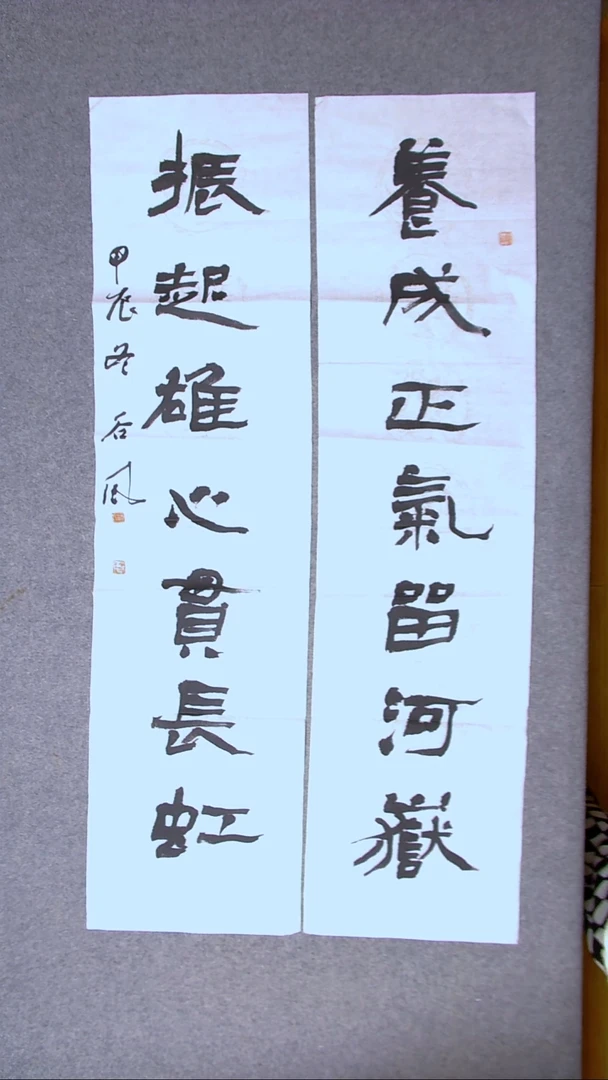 養成正氣留河嶽
振起雄心貫長虹
甲辰冬 石風